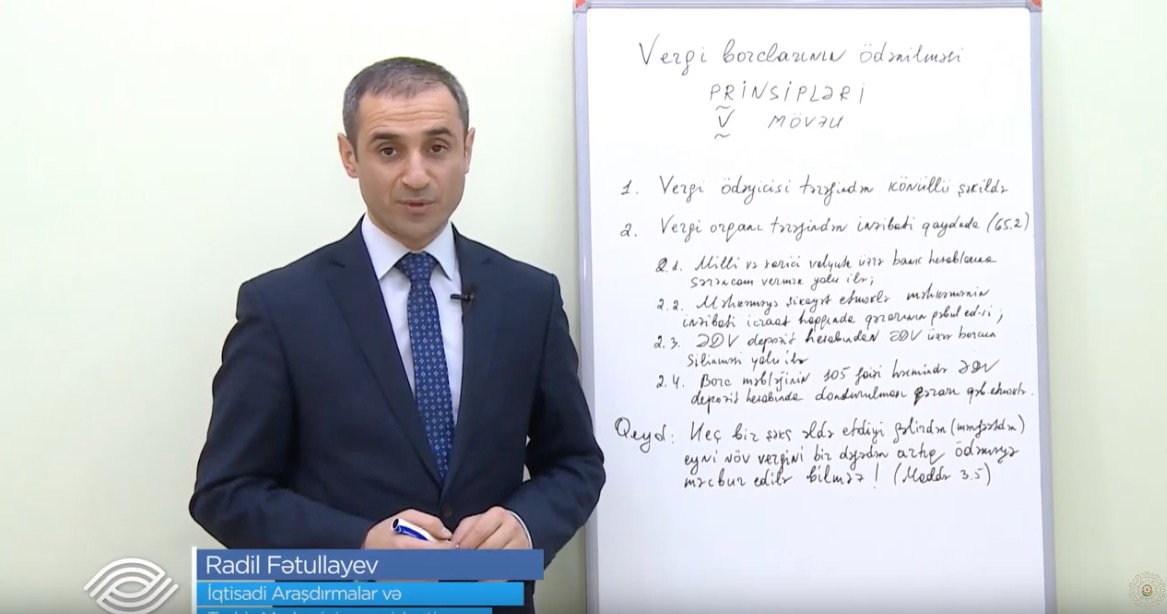 Vergi borclarının ödənilməsi
PRİNSİPLƏRİ
V MÖVZU
1. Vergi ödəyicisi tərəfindən könüllü şəkildə
2. Vergi orqanı tərəfindən inzibati qaydada (65.2)
2.1. Milli və xarici valyuta üzrə bank hesablarına
sərəncam vermək yolu ilə;
2.2. Məhkəməyə şikayət etməklə məhkəmənin
inzibati icraat haqqında qərarının qəbul ed-si;
2.3. ƏDV depozit hesabından ƏDV üzrə borcun
silinməsi yolu ilə
2.4. Borc məbləğinin 105 faizi həcmində ƏDV
depozit hesabında dondurulması qərarı qəb. etməklə.
Qeyd: Heç bir şəxs əldə etdiyi gəlirdən (mənfəətdən)
eyni növ vergini bir dəfədən artıq ödəməyə
məcbur edilə bilməz! (Maddə 3.5)
Radil Fətullayev
İqtisadi Araşdırmalar və